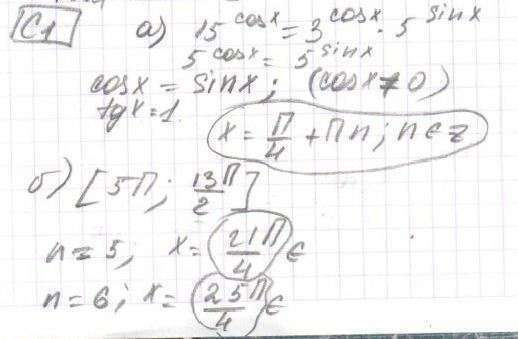 C1 а) 15^cosx = 3^cosx · 5^sinx
5^cosx = 5^sinx
cosx = sinx; (cosx ≠ 0)
tgx = 1
x = π/4 + πn; n ∈ z
б) [5π; 13π/2]
n = 5; x = 21π/4 ∈
n = 6; x = 25π/4 ∈